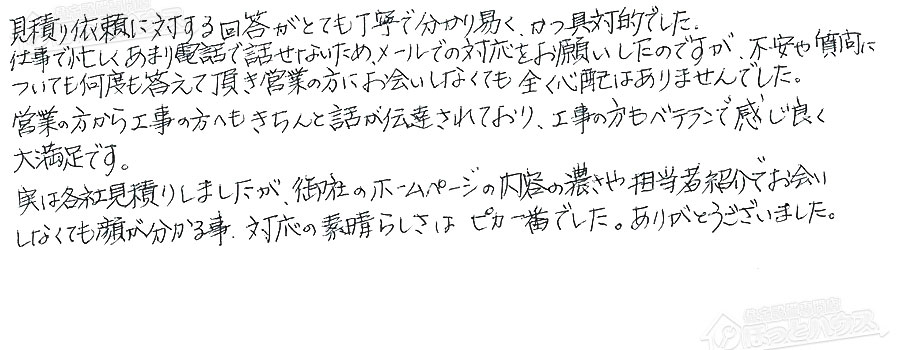 見積り依頼に対する回答がとても丁寧で分かり易く、かつ具対的でした。
仕事で忙しくあまり電話で話せないため、メールでの対応をお願いしたのですが、不安や質問に
ついても何度も答えて頂き営業の方にお会いしなくても全く心配はありませんでした。
営業の方から工事の方へもきちんと話が伝達されており、工事の方もベテランで感じ良く
大満足です。
実は各社見積りしましたが、御社のホームページの内容の濃さや担当者紹介でお会い
しなくても顔が分かる事、対応の素晴らしさはピカ一番でした。ありがとうございました。
ほっとハウス